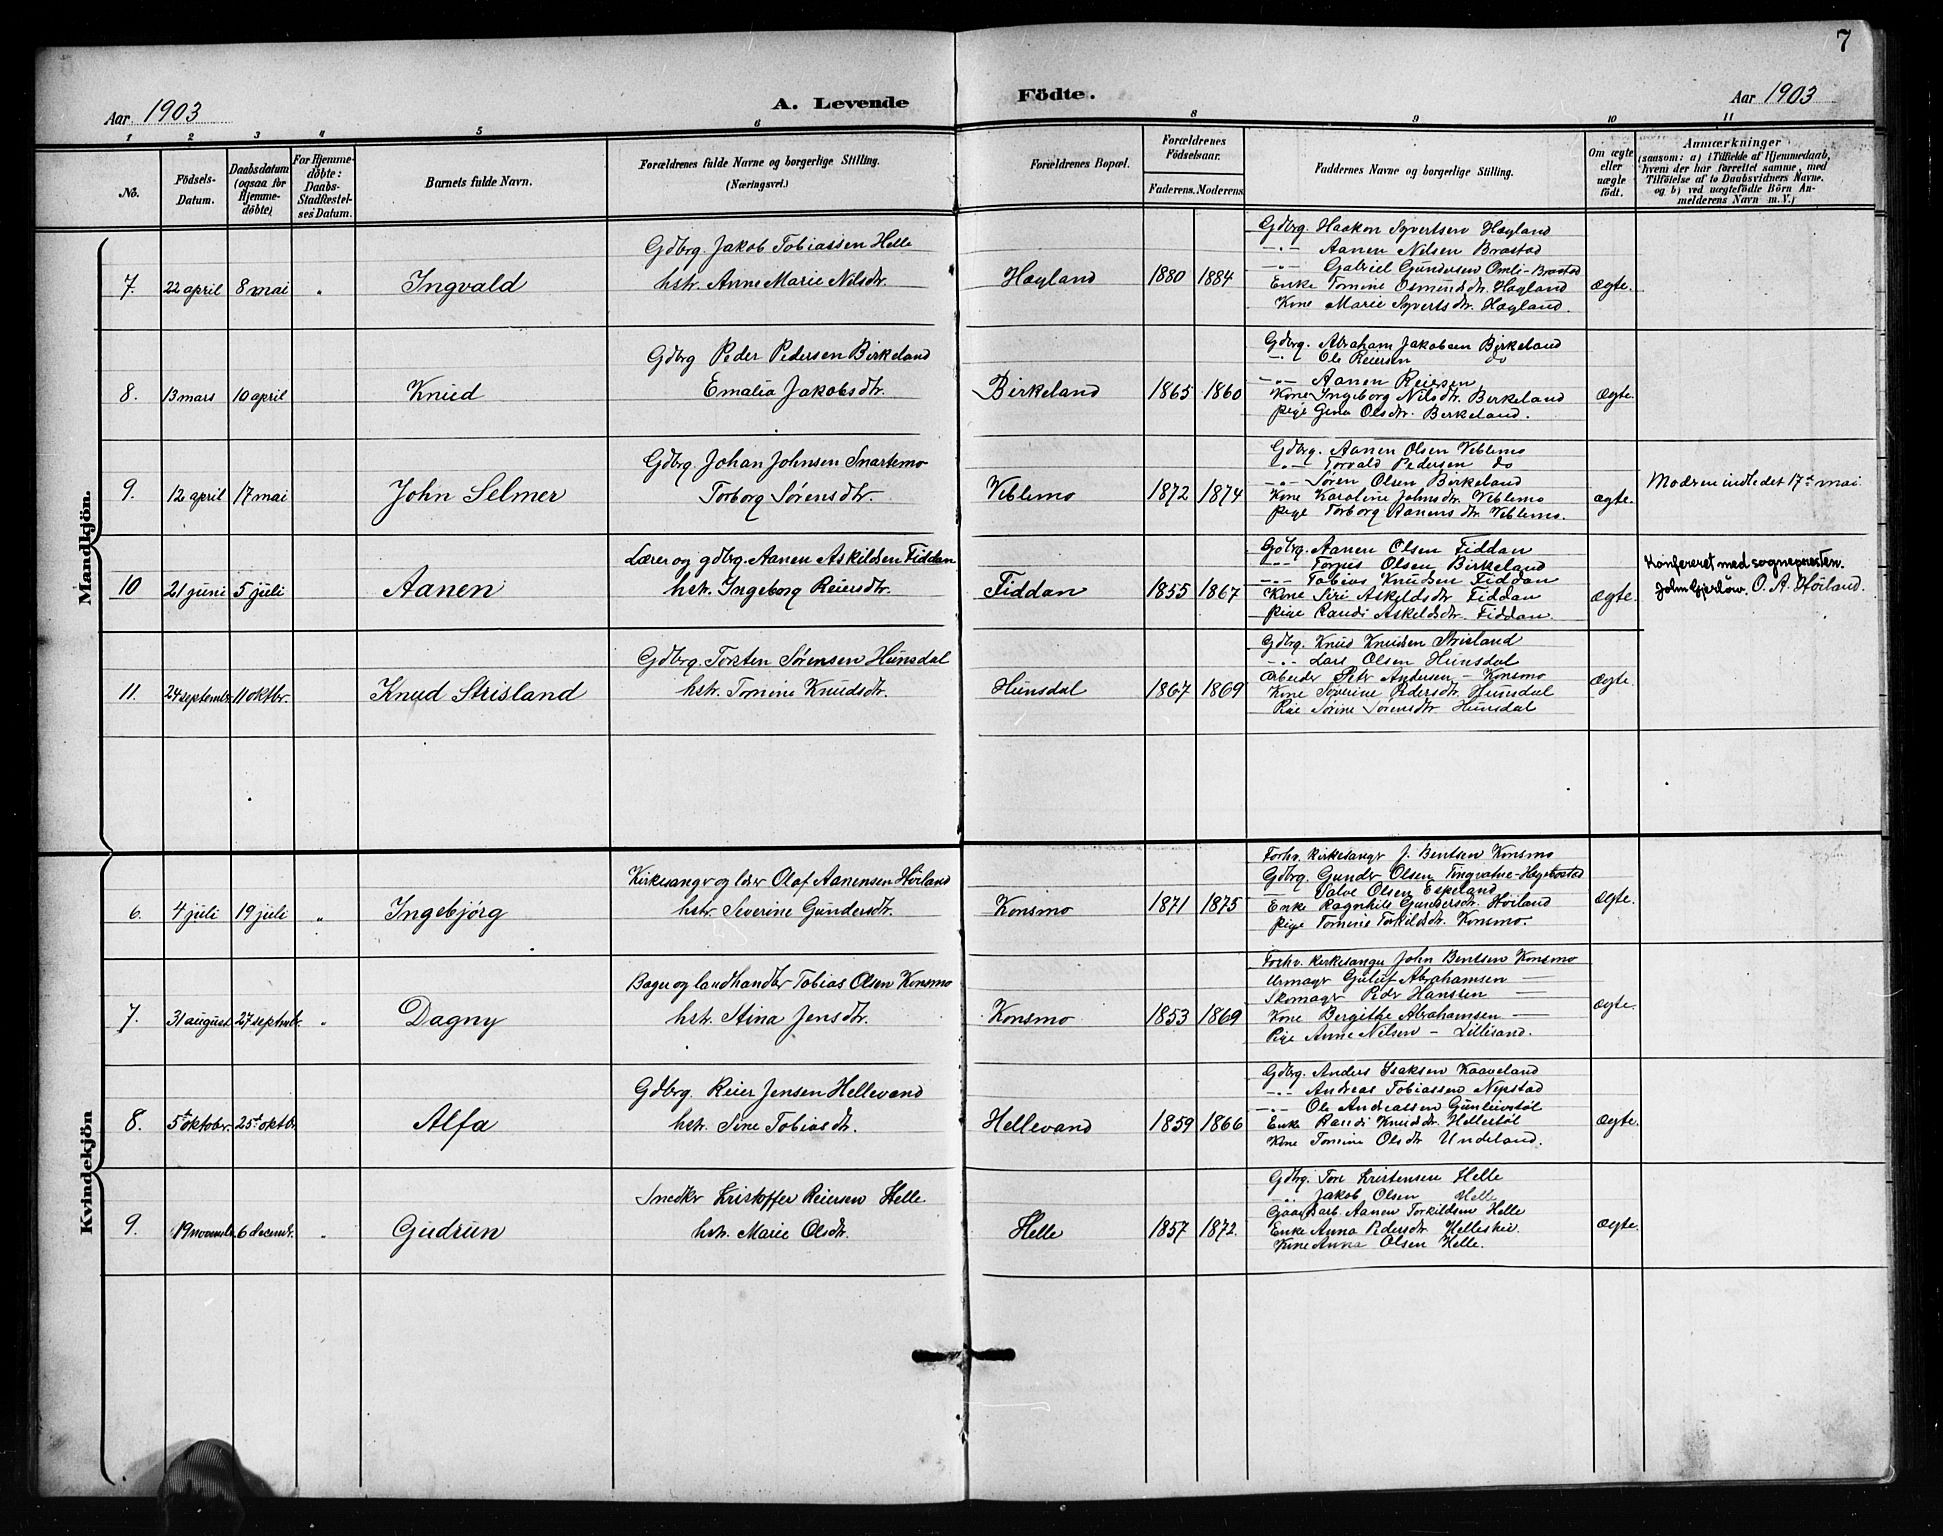 7
Aar 1903
A. Levende Födte.
Aar 1903
1 2 3 4 5 6 8 9 10 11
No.
Födsels-Datum.
Daabsdatum (ogsaa for Hjemme-döbte)
For Hjemme-döbte: Daabs-Stadfæstel-ses Datum.
Barnets fulde Navn.
Forældrenes fulde Navne og borgerlige Stilling. (Næringsvei.)
Forældrenes Bopæl.
Forældrenes Födselsaar.
Faderens. Moderens.
Faddernes Navne og borgerlige Stilling.
Om ægte eller uægte födt.
Anmærkninger
(saasom: a) i Tilfælde af Hjemmedaab, hvem der har forrettet samme, med Tilföielse af to Daabsvidners Navne. og b) ved uægtefödte Börn An-melderens Navn m.V.)
Mandkjön.
7. 22 april 8 mai " Ingvald
Gdbrg. Jakob Tobiassen Helle
hstr. Anne Marie Nilsdtr.
Høyland 1880 1884
Gdbrg. Haakon Syvertsen Høyland
-"- Aanen Nilsen Brastad
-"- Gabriel Gundersen Omli-Brastad
Enke Tomine Osmundsdtr. Høyland
Kone Marie Syvertsdtr. Høyland.
Ægte.
8. 13 mars 10 april Knud
Gdbrg Peder Pedersen Birkeland
Emalia Jakobsdtr.
Birkeland 1865 1860
Gdbrg. Abraham Jakobsen Birkeland
-"- Ole Reiersen do
-"- Aanen Reiersen
Kone Ingeborg Nilsdtr. Birkeland
pige Gena Olsdtr. Birkeland.
Ægte.
9. 12 april 17 mai John Selmer
Gdbrg. Johan Johnsen Snartemo
Torborg Sørensdtr.
Veblemo 1872 1874
Gdbrg. Aanen Olsen Veblemo
-"- Torvald Pedersen do
-"- Søren Olsen Birkeland
Kone Karoline Johnsdtr. Veblemo
pige Torborg Aanensdtr. Veblemo.
ægte.
Moderen indledet 17de mai
10 21 juni 5 juli Aanen
Lærer og gdbrg. Aanen Askildsen Fiddan
hstr. Ingeborg Reiersdtr.
Fiddan 1855 1867
Gdbrg. Aanen Olsen Fiddan
-"- Torjus Olsen Birkeland
-"- Tobias Knudsen Fiddan
Kone Siri Askildsdtr Fiddan
pige Randi Askildsdtr. Fiddan.
Ægte.
Konfereret med sognepresten.
John Gjerløw. O. A. Høiland.
11. 24 septembr. 11 oktbr. Knud Strisland
Gdbrg. Torsten Sørensen Hunsdal
hstr. Tomine Knudsdtr.
Hunsdal 1867 1869
Gdbrg. Knud Knudsen Strisland
-"- Lars Olsen Hunsdal
Arbeider Petr Andersen - Konsmo
Kone Severine Pedersdtr. Hunsdal
Pige Sørine Sørensdtr. Hunsdal
Ægte.
Kvindekjön
6. 4 juli 19 juli " Ingebjörg
Kirkesangr og lærer Olaf Aanensen Höiland
hstr. Severine Gundersdtr.
Konsmo 1871 1875
Forhv. kirkesangr J. Bentsen Konsmo
Gdbrg. Gunder Olsen Tingvatne-Hægebostad
Salve Olsen Espeland
Enke Ragnhild Gundersdtr. Höiland
pige Tomine Torkildsdtr. Konsmo.
Ægte.
7. 31 august 27 septmbr. " Dagny
Bager og landhandler Tobias Olsen Konsmo
hstr. Stina Jensdtr.
Konsmo 1853 1869
Forhv. kirkesanger John Bentsen Konsmo
Urmager Guluf Abrahamsen —
Skomagr Pedr Hansten —
Kone Bergithe Abrahamsen —
Pige Anne Nelsen - Lillisand.
ægte.
8. 5te oktobr. 25de oktbr. Alfa
Gdbrg Reier Jensen Hellevand
hstr. Sine Tobiasdtr.
Hellevand 1859 1866
Gdbrg. Anders Isaksen Kaaveland
-"- Andreas Tobiassen Nepstad
-"- Ole Andreassen Gunleivstöl
Enke Randi Knudsdtr Hellestöl
Kone Tomine Olsdtr Undeland.
Ægte.
9. 19 novembr 6 decembr. " Gudrun
Snedkr Kristoffer Reiersen Helle
hstr. Marie Olsdtr.
Helle 1857 1872.
Gdbrg. Tore Kristensen Helle
-"- Jakob Olsen Helle
Gaardarb. Aanen Torkildsen Helle
Enke Anna Pedersdtr. Helleshei.
Kone Anna Olsen Helle.
Ægte.